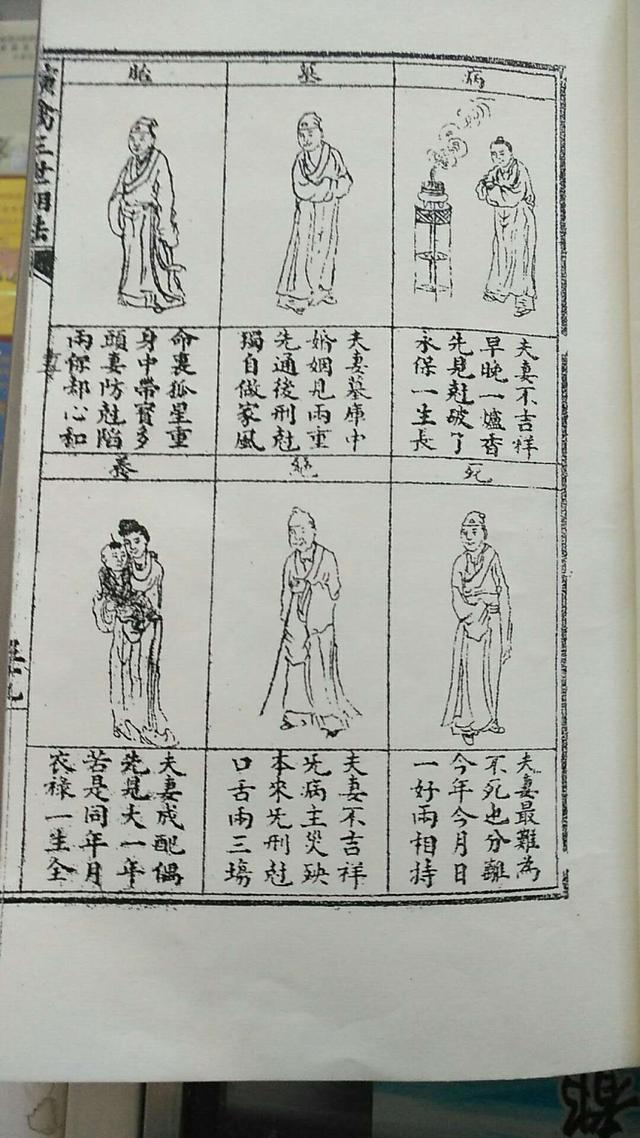 病
夫妻不吉祥
早晚一爐香
先見尅破了
永保一生長
墓
夫妻墓庫中
婚姻見兩重
先通後刑尅
獨自做家風
胎
命裏孤星重
身中帶寳多
頭妻防尅陷
兩保却心和
死
夫妻最難為
不死也分離
今年今月日
一好兩相持
絕
夫妻不吉祥
先病主災殃
本來先刑尅
口舌兩三塲
養
夫妻成配偶
先見大一年
若是同年月
衣祿一生全
演禽三世相法